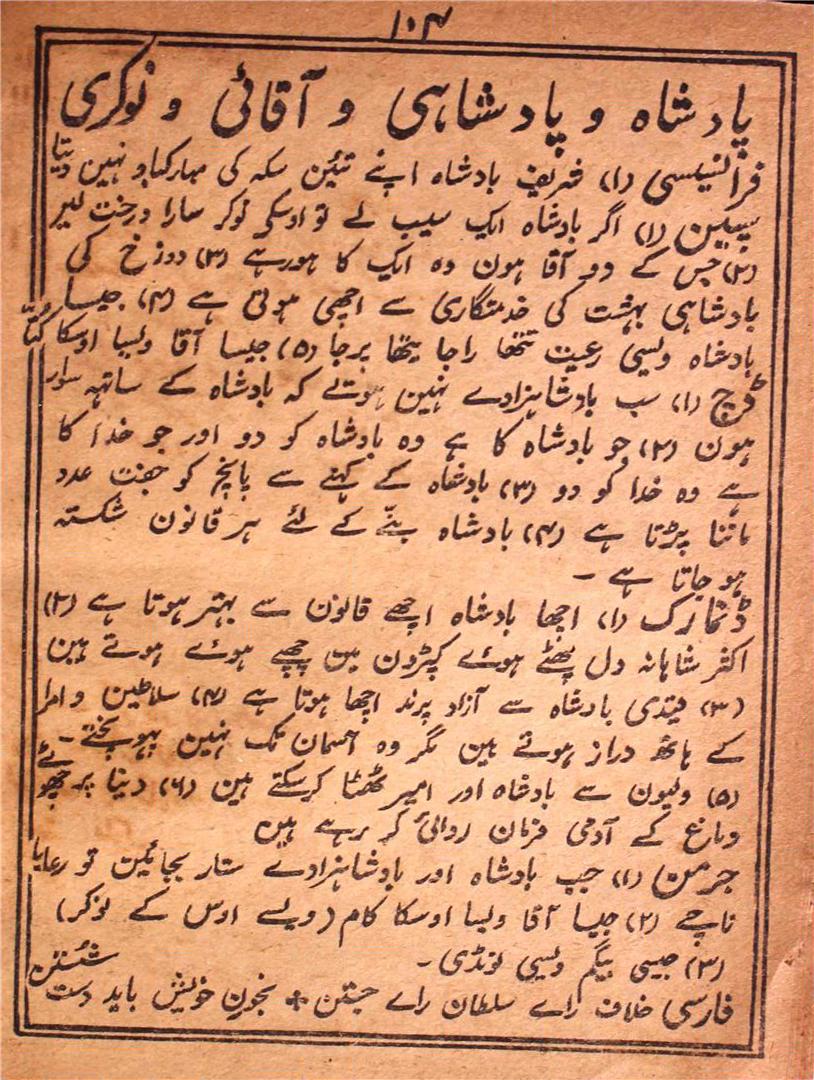 ۱۰۴
پادشاہ و پادشاہی و آقائی و نوکری
فرانسیسی (۱) شریف بادشاہ اپنے تئین سکہ کی مبارکباد نہین دیتا
سپین (۱) اگر بادشاہ ایک سیب لے تو اوسکی نوکر سارا درخت لیں
(۲) جس کے دو آقا ہون وہ ایک کا ہورہے (۳) دوزخ کی
بادشاہی بہشت کی خدمتگاری سے اچھی ہوتی ہے (۴) جیسا
بادشاہ ویسی رعیت تتھا راجا یتھا پرجا (۵) جیسا آقا ویسا اوسکا کُتّا
ڈچ (۱) سب بادشاہزادے نہین ہوتے کہ بادشاہ کے ساتھ سوار
ہون (۲) جو بادشاہ کا ہے وہ بادشاہ کو دو اور جو خدا کا
ہے وہ خدا کو دو (۳) بادشاہ کے کہنے سے پانچ کو جفت عدد
ماننا پڑتا ہے (۴) بادشاہ بننے کے لئے ہر قانون شکستہ
ہو جاتا ہے ۔
ڈنمارک (۱) اچھا بادشاہ اچھے قانون سے بہتر ہوتا ہے (۲)
اکثر شاہانہ دل پھٹے ہوئے کپڑون مین چھپے ہوئے ہوتے ہین
(۳) قیدی بادشاہ سے آزاد پرند اچھا ہوتا ہے (۴) سلاطین و امرا
کے ہاتھ دراز ہوتے ہین مگر وہ آسمان تک نہین پہونچتے ۔
(۵) ولیون سے بادشاہ اور امیر ٹھٹا کرسکتے ہین (۶) دنیا پر چھوٹے
دماغ کے آدمی فرمان روائی کر رہے ہین
جرمن (۱) جب بادشاہ اور بادشاہزادے ستار بجائین تو رعایا
ناچے (۲) جیسا آقا ویسا اوسکا کام (ویسے اوس کے نوکر)
(۳) جیسی بیگم ویسی لونڈی ۔
فارسی خلاف رائے سلطان رائے جستن + بخون خویش باید دست شستن